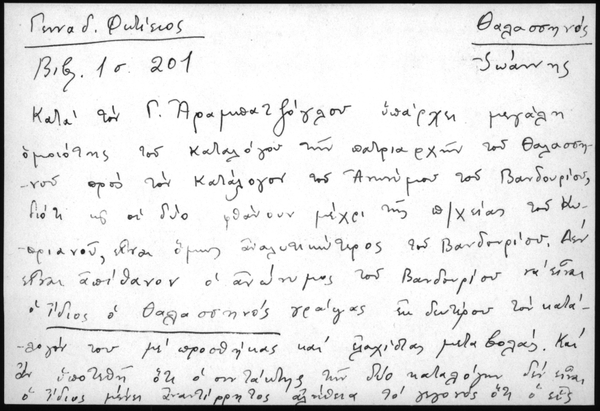 Γενναδ. Φωτίειος
Θαλασσηνός
Βιβ. 1 σ. 201
Ἰωάννης
Κατά τόν Γ. Ἀραμπατζόγλου ὑπάρχει μεγάλη
ὁμοιότης τοῦ καταλόγου τῶν πατριαρχῶν τοῦ Θαλασση-
νοῦ πρός τόν κατάλογον τοῦ Ἀνωνύμου τοῦ Βανδουρίου,
διότι καί οἱ δύο φθάνουν μέχρι τῆς π/χείας τοῦ Κυ-
πριανοῦ, εἶναι ὅμως ἀναλυτικώτερος τοῦ Βανδουρίου. Δέν
εἶναι ἀπίθανον ὁ ἀνώνυμος τοῦ Βανδουρίου νά εἶναι
ὁ ἴδιος ὁ Θαλασσηνός γράψας ἐκ δευτέρου τόν κατά-
-λογόν του μέ προσθήκας καί ἐλαχίστας μεταβολάς. Καί
ἄν ὑποτεθῆ ὅτι ὁ συντάκτης τῶν δύο καταλόγων δέν εἶναι
ὁ ἴδιος μένει ἀναντίρρητος ἀλήθεια τό γεγονός ὅτι ὁ εἷς